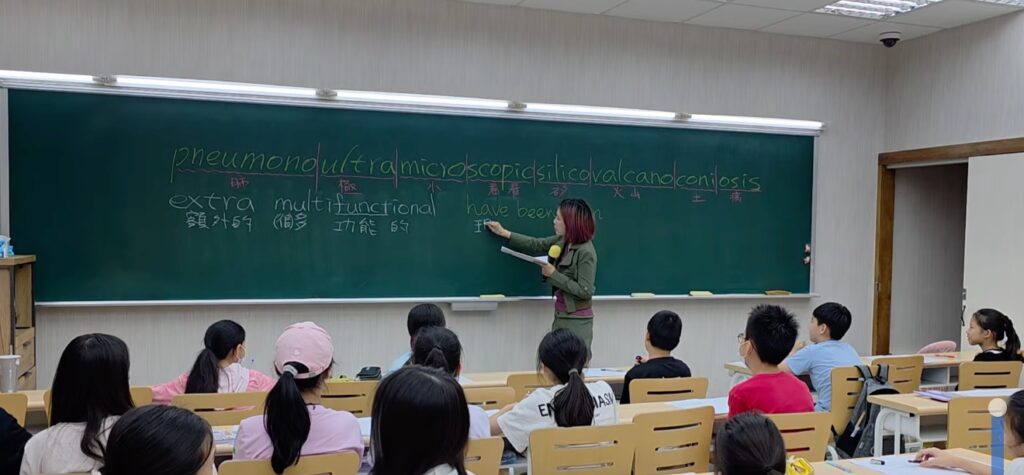 pneumono|ultra|micro|scopic|silico|valcano|coni|osis
肺 極 小 砂 火山 土 病
extra multifunctional have been
額外的 很多 功能 的